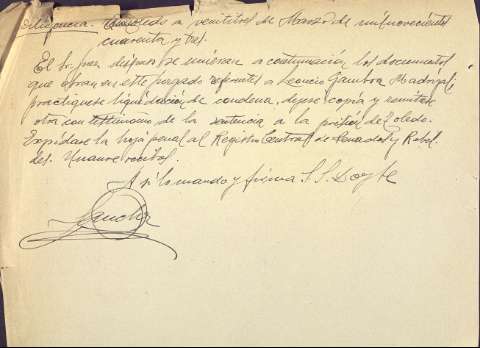 Diligencia. En Toledo a veintitres de Marzo de mil novecientos
cuarenta y tres.
El Sr. Juez dispuso se uniesen a continuación los documentos
que obran en este Juzgado referentes a Leoncio Gambra Madrigal,
practiquese liquidación de condena, dejese copia y remitase
otra con testimonio de la sentencia a la prisión de Toledo.
Expídase la hoja penal al Registro Central de Penados y Rebel
des.
Asi lo mando y firma S.S. Doy fe
Sanchez